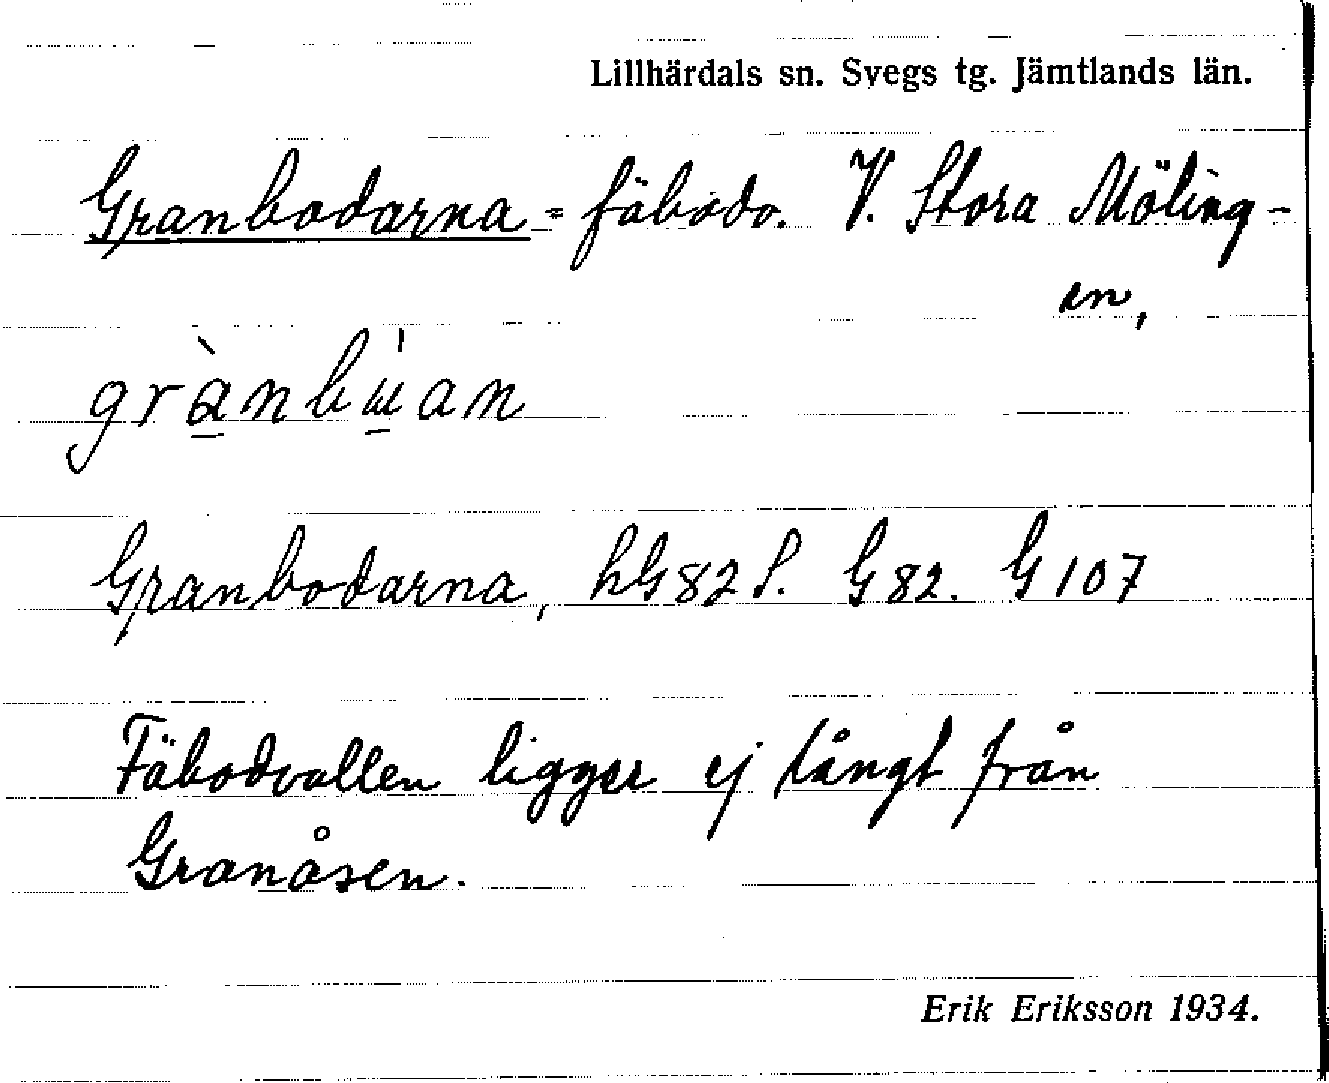 Lillhärdals sn. Svegs tg. Jämtlands län.
Granbodarna = fäbodo. V. Stora Möling-
en,
grànbɯ̀an
Granbodarna, hG82S. G82. G107
Fäbodvallen ligger ej långt från
Granåsen.
Erik Eriksson 1934.